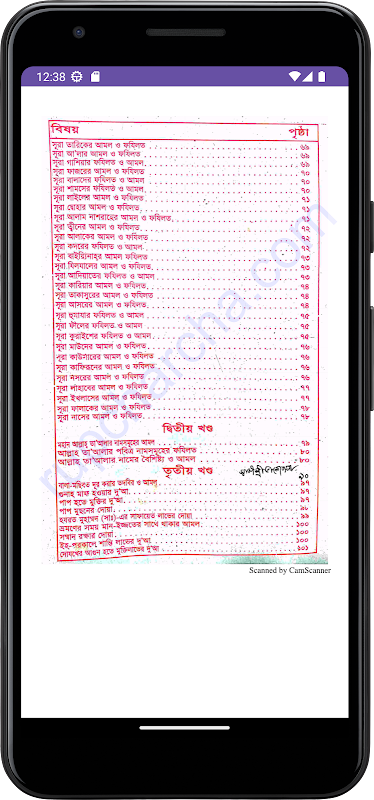 12:38
বিষয় পৃষ্ঠা
সূরা তারিকের আমল ও ফযিলত ৬৯
সূরা আ'লার আমল ও ফযিলত ৬৯
সূরা গাশিয়ার ফযিলত ও আমল ৬৯
সূরা ফাজরের আমল ও ফযিলত ৭০
সূরা বালাদের ফযিলত ও আমল ৭০
সূরা শামসের ফযিলত ও আমল ৭০
সূরা লাইলের আমল ও ফযিলত ৭১
সূরা দ্বোহার আমল ও ফযিলত ৭১
সূরা আলাম নাশরাহের আমল ও ফযিলত ৭১
সূরা ত্বীনের আমল ও ফযিলত ৭২
সূরা আলাকের আমল ও ফযিলত ৭২
সূরা কদরের ফযিলত ও আমল ৭২
সূরা বাইয়্যিনাহর আমল ফযিলত ৭৩
সূরা যিলযালের আমল ও ফযিলত ৭৩
সূরা আদিয়াতের ফযিলত ও আমল ৭৩
সূরা কারিয়ার আমল ও ফযিলত ৭৪
সূরা তাকাসুরের আমল ও ফযিলত ৭৪
সূরা আসরের আমল ও ফযিলত ৭৪
সূরা হুমাযার ফযিলত ও আমল ৭৫
সূরা ফীলের ফযিলত ও আমল ৭৫
সূরা কুরাইশের ফযিলত ও আমল ৭৫
সূরা মাউনের আমল ও ফযিলত
সূরা কাউসারের আমল ও ফযিলত ৭৬
সূরা কাফিরূনের আমল ও ফযিলত ৭৬
সূরা নসরের আমল ও ফযিলত ৭৬
সূরা লাহাবের আমল ও ফযিলত ৭৭
সূরা ইখলাসের আমল ও ফযিলত ৭৭
সূরা ফালাকের আমল ও ফযিলত ৭৮
সূরা নাসের আমল ও ফযিলত ৭৮
দ্বিতীয় খণ্ড
মহান আল্লাহ্ তা'আলার নামসমূহের আমল ৭৯
আল্লাহ তা'আলার পবিত্র নামসমূহের ফযিলত ৮০
আল্লাহ তা'আলার নামের বৈশিষ্ট্য ও আমল ৮০
তৃতীয় খণ্ড
৯০
বালা-মছিবত দূর করার তদবির ও আমল ৯৭
গুনাহ মাফ হওয়ার দু'আ ৯৭
পাপ হতে মুক্তির দু'আ ৯৭
পাপ মুছনের দোয়া ৯৮
হযরত মুহাম্মদ (সাঃ)-এর সাফায়েত লাভের দোয়া
ভ্রমণের সময় মান-ইজ্জতের সাথে থাকার আমল ১০০
সম্মান রক্ষার দোয়া ১০০
ইহ-পরকালে শান্তি লাভের দু'আ ১০০
দোযখের আগুন হতে মুক্তিলাভের দু'আ ১০১
Scanned by CamScanner